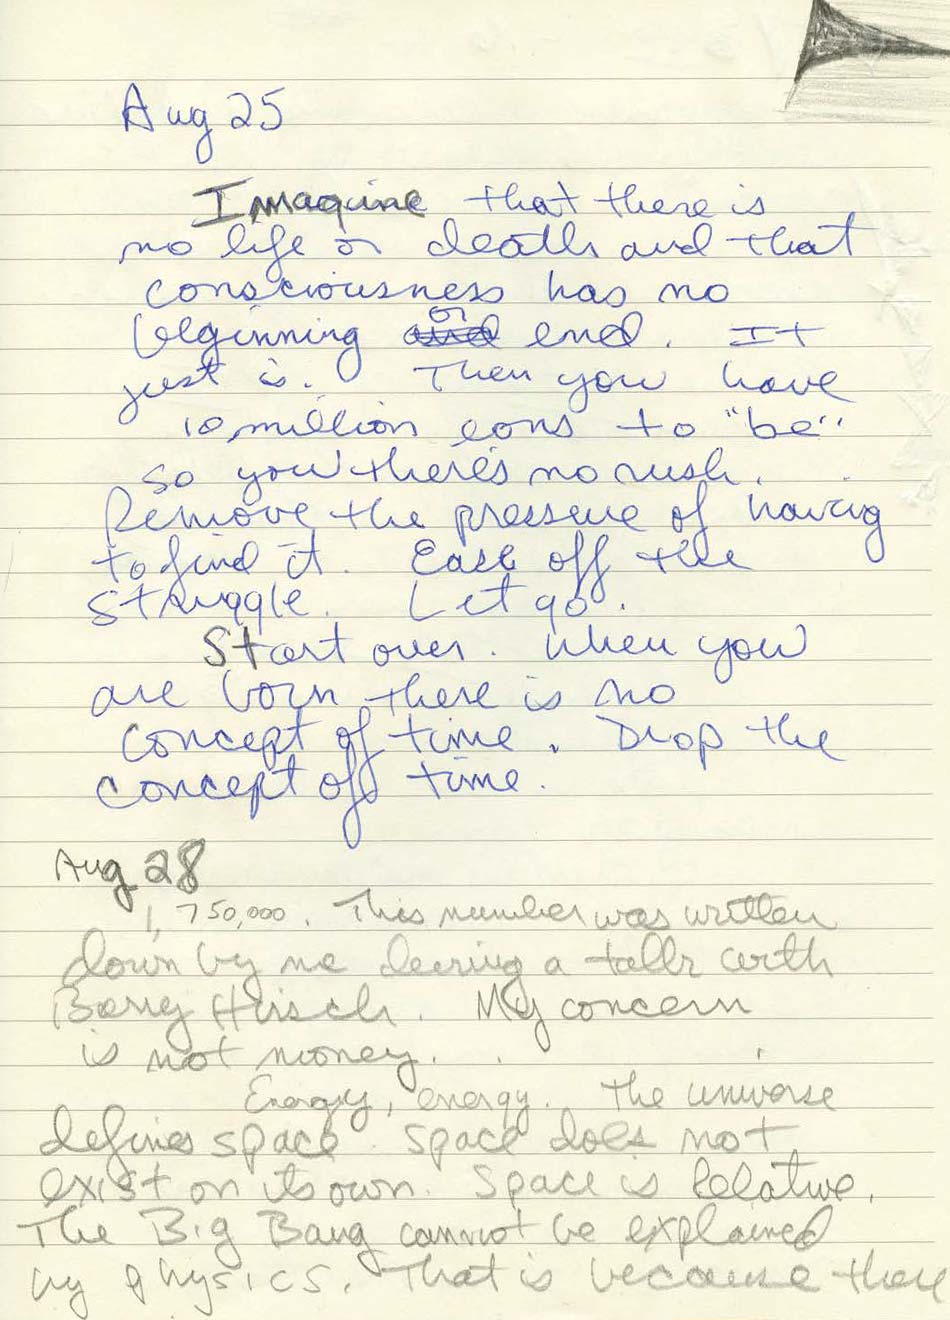 Aug 25
Imagine that there is
no life or death and that
consciousness has no
beginning or end. It
just is. Then you have
10 million eons to "be"
so you there's no rush.
Remove the pressure of having
to find it. Ease off the
struggle. Let go.
Start over. When you
are born there is no
concept of time. Drop the
concept of time.
Aug 28
1,750,000. This number was written
down by me during a talk with
Barry Hirsch. My concern
is not money.
Energy, energy. The universe
defines space. Space does not
exist on its own. Space is Relative.
The Big Bang cannot be explained
by physics. That is because there